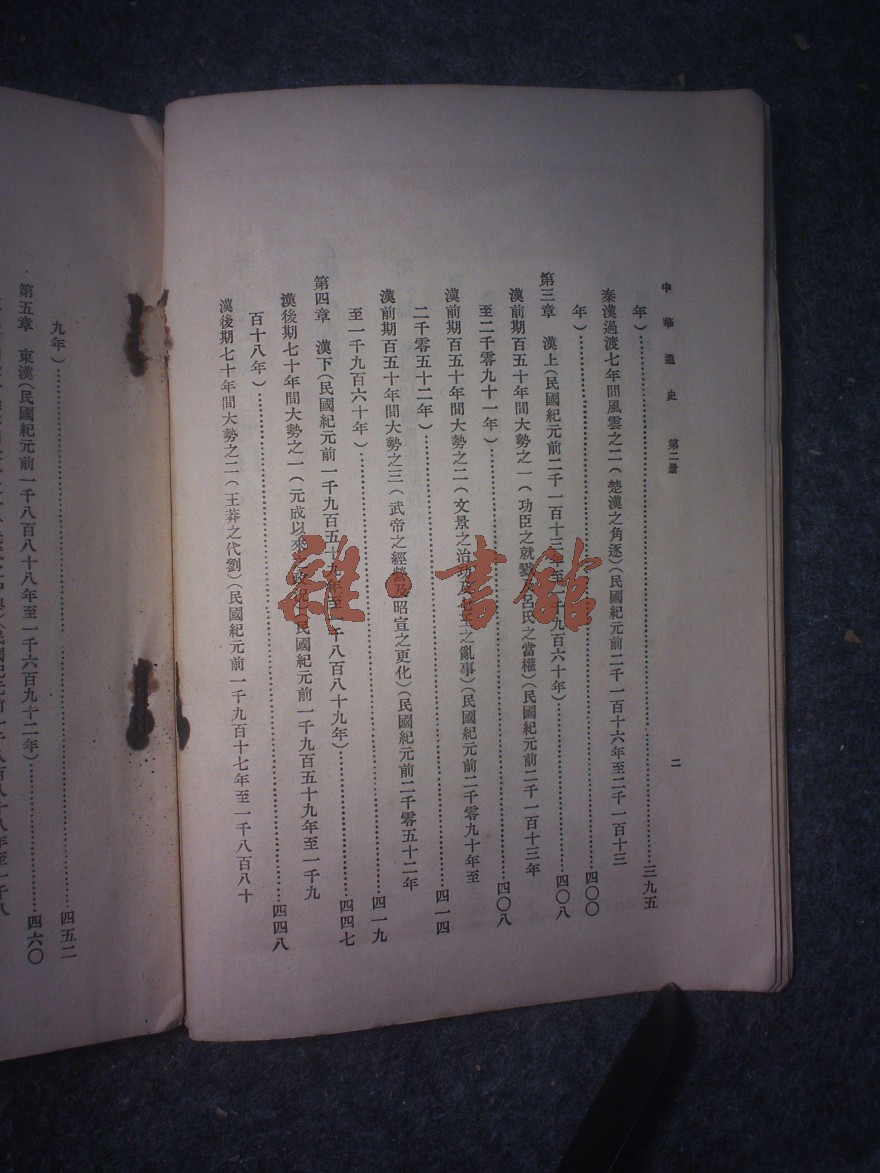 中華通史 第二册 二
年)……三九五
秦漢過渡七年間風雲之二(楚漢之角逐)(民國紀元前二千一百十六年至二千一百十三
年)……四〇〇
第三章 漢上(民國紀元前二千一百十三年至一千九百六十年)……四〇八
漢前期百五十年間大勢之一(功臣之就戮 呂氏之當權)(民國紀元前二千一百十三年
至二千零九十一年)……四〇八
漢前期百五十年間大勢之二(文景之治功及 之亂事)(民國紀元前二千零九十年至
二千零五十二年)……四一四
漢前期百五十年間大勢之三(武帝之經營及昭宣之更化)(民國紀元前二千零五十二年
至一千九百六十年)……四一九
第四章 漢下(民國紀元前一千九百五十九年至一千八百八十九年)……四四七
漢後期七十年間大勢之一(元成以來 政況)(民國紀元前一千九百五十九年至一千九
百十八年)……四四八
漢後期七十年間大勢之二(王莽之代劉)(民國紀元前一千九百十七年至一千八百八十
九年)……四五二
第五章 東漢(民國紀元前一千八百八十八年至一千六百九十二年)……四六〇
雜·書館